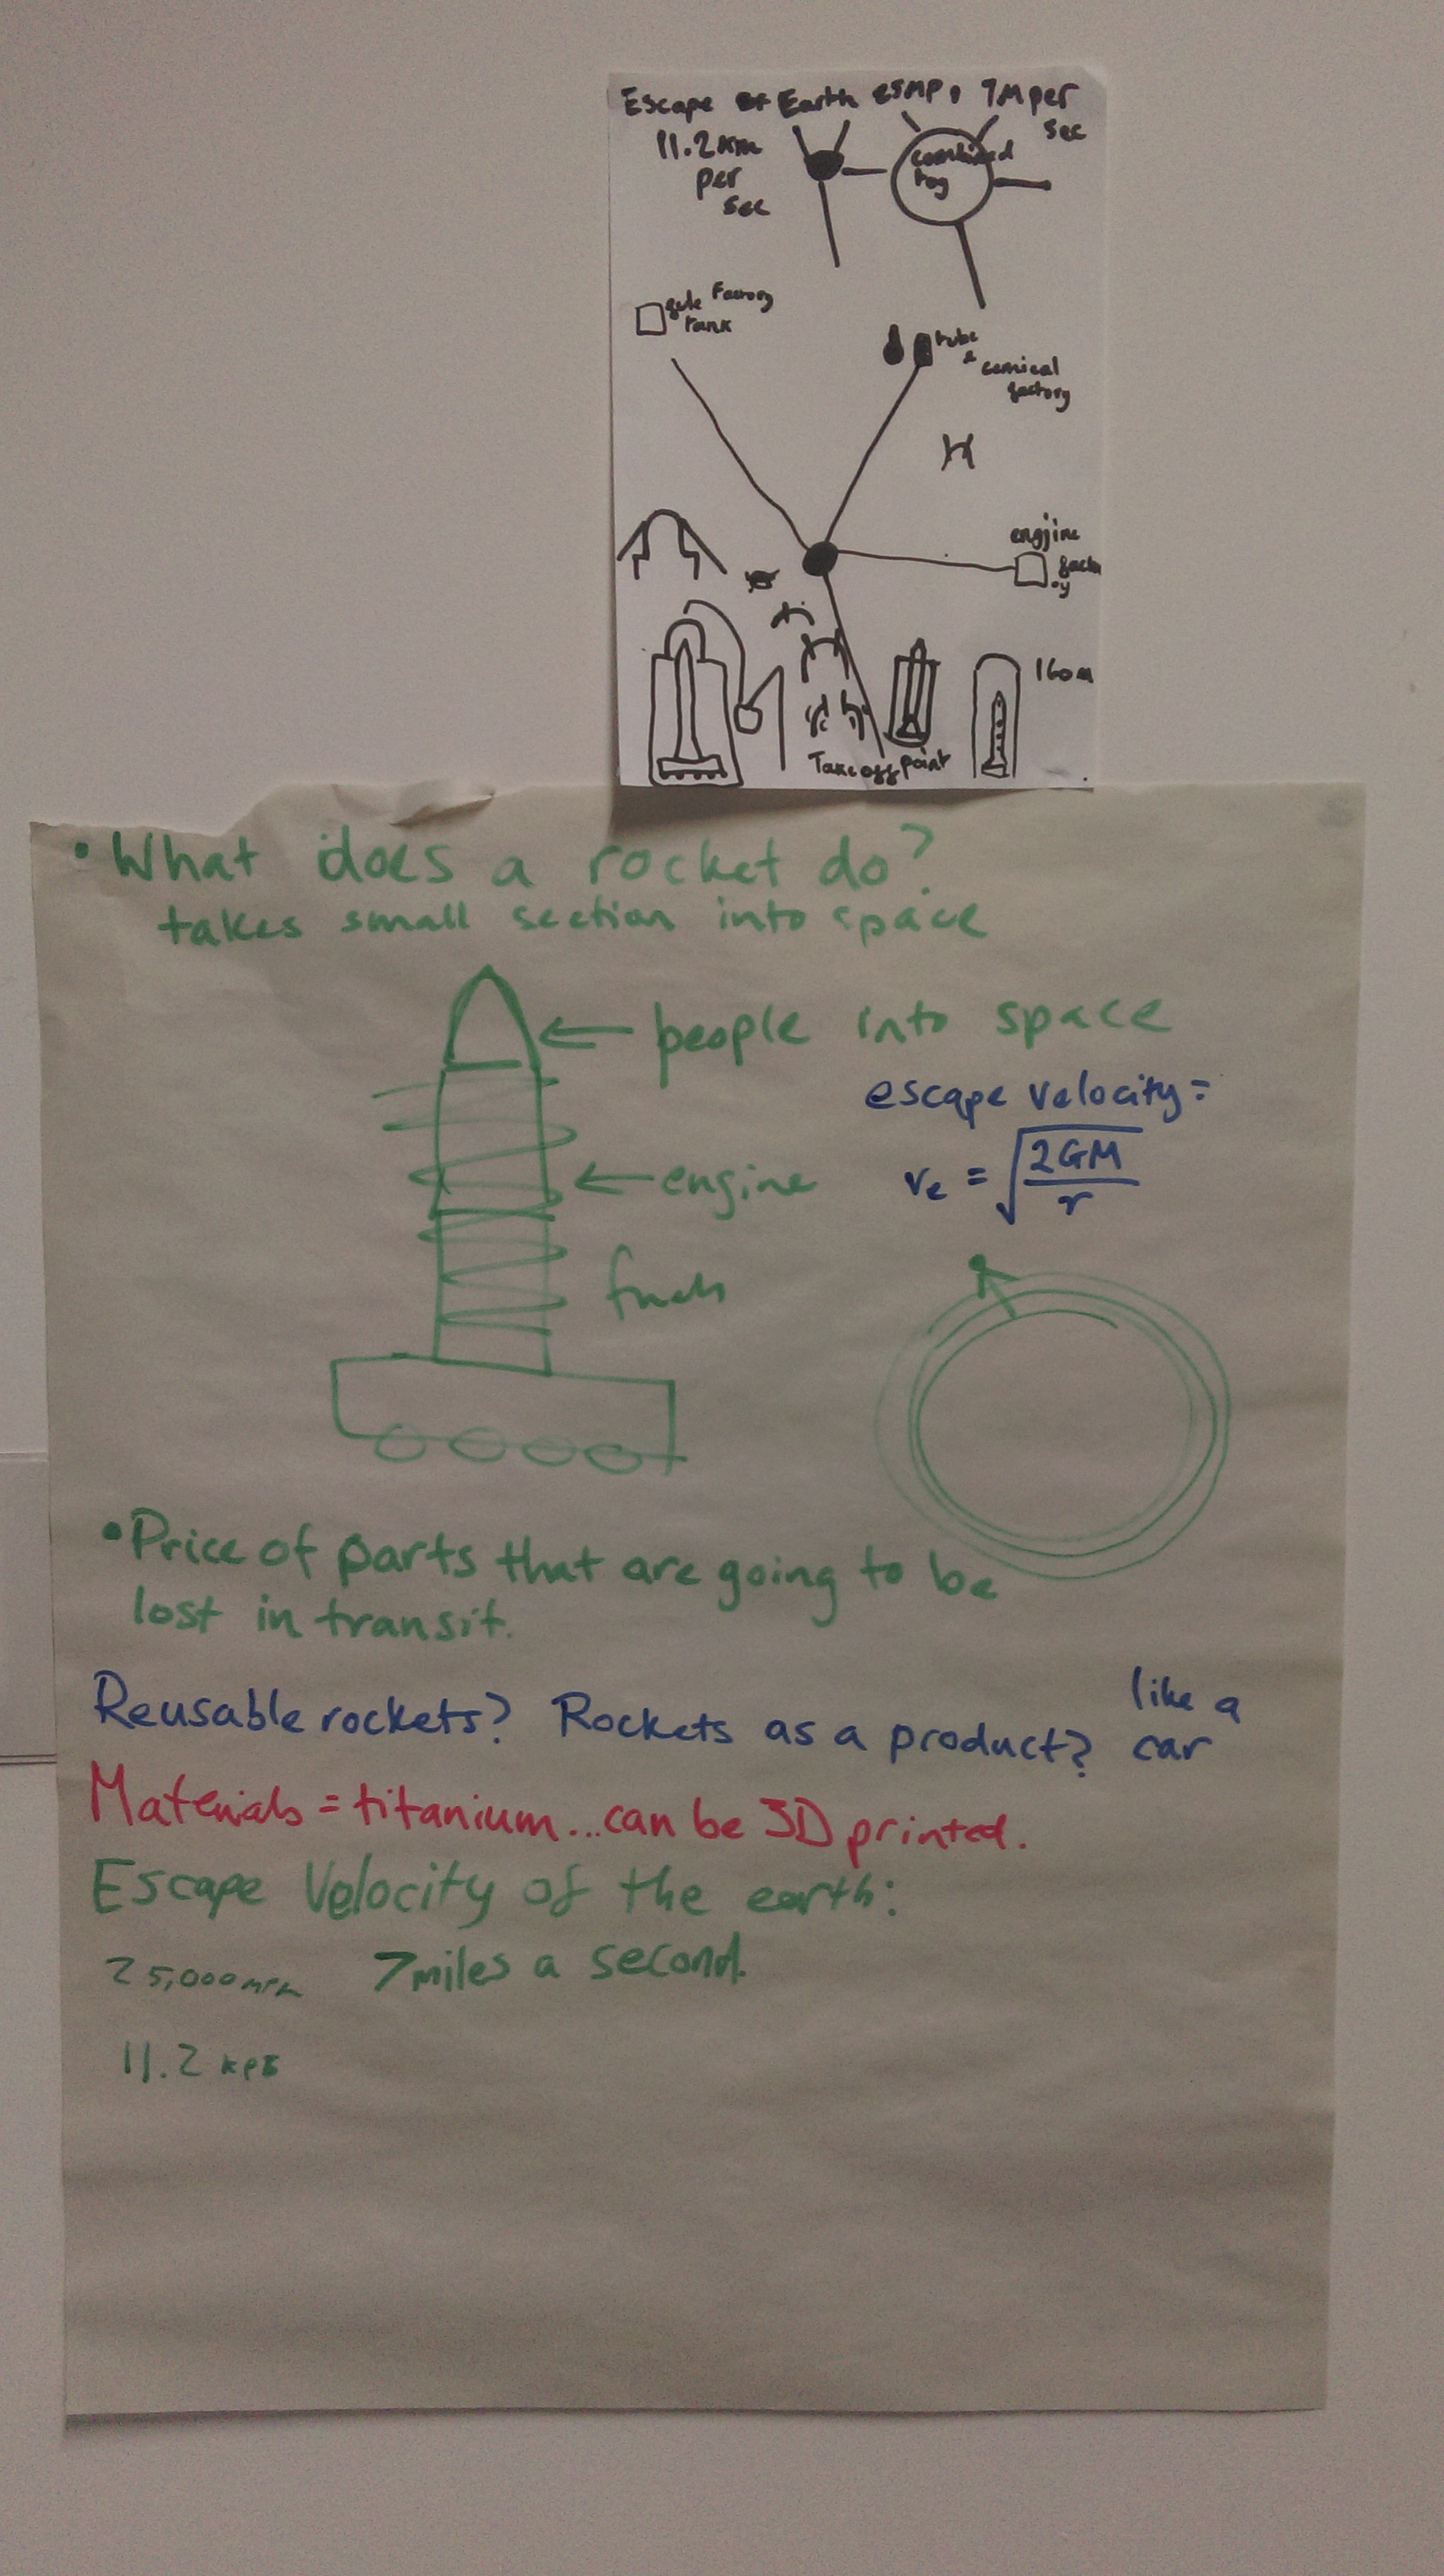 Escape of Earth 25MP, 7M per
sec
11.2km
per
sec
combined
Factory
tank
tube
&
cemical
factory
engjine
160m
Take off point
• What does a rocket do?
takes small section into space
people into space
escape velocity =
ve = √2GM/r
engine
fuels
• Price of parts that are going to be
lost in transit.
Reusable rockets? Rockets as a product? like a
car
Materials = titanium...can be 3D printed.
Escape Velocity of the earth:
25,000mph 7miles a second.
11.2 kps